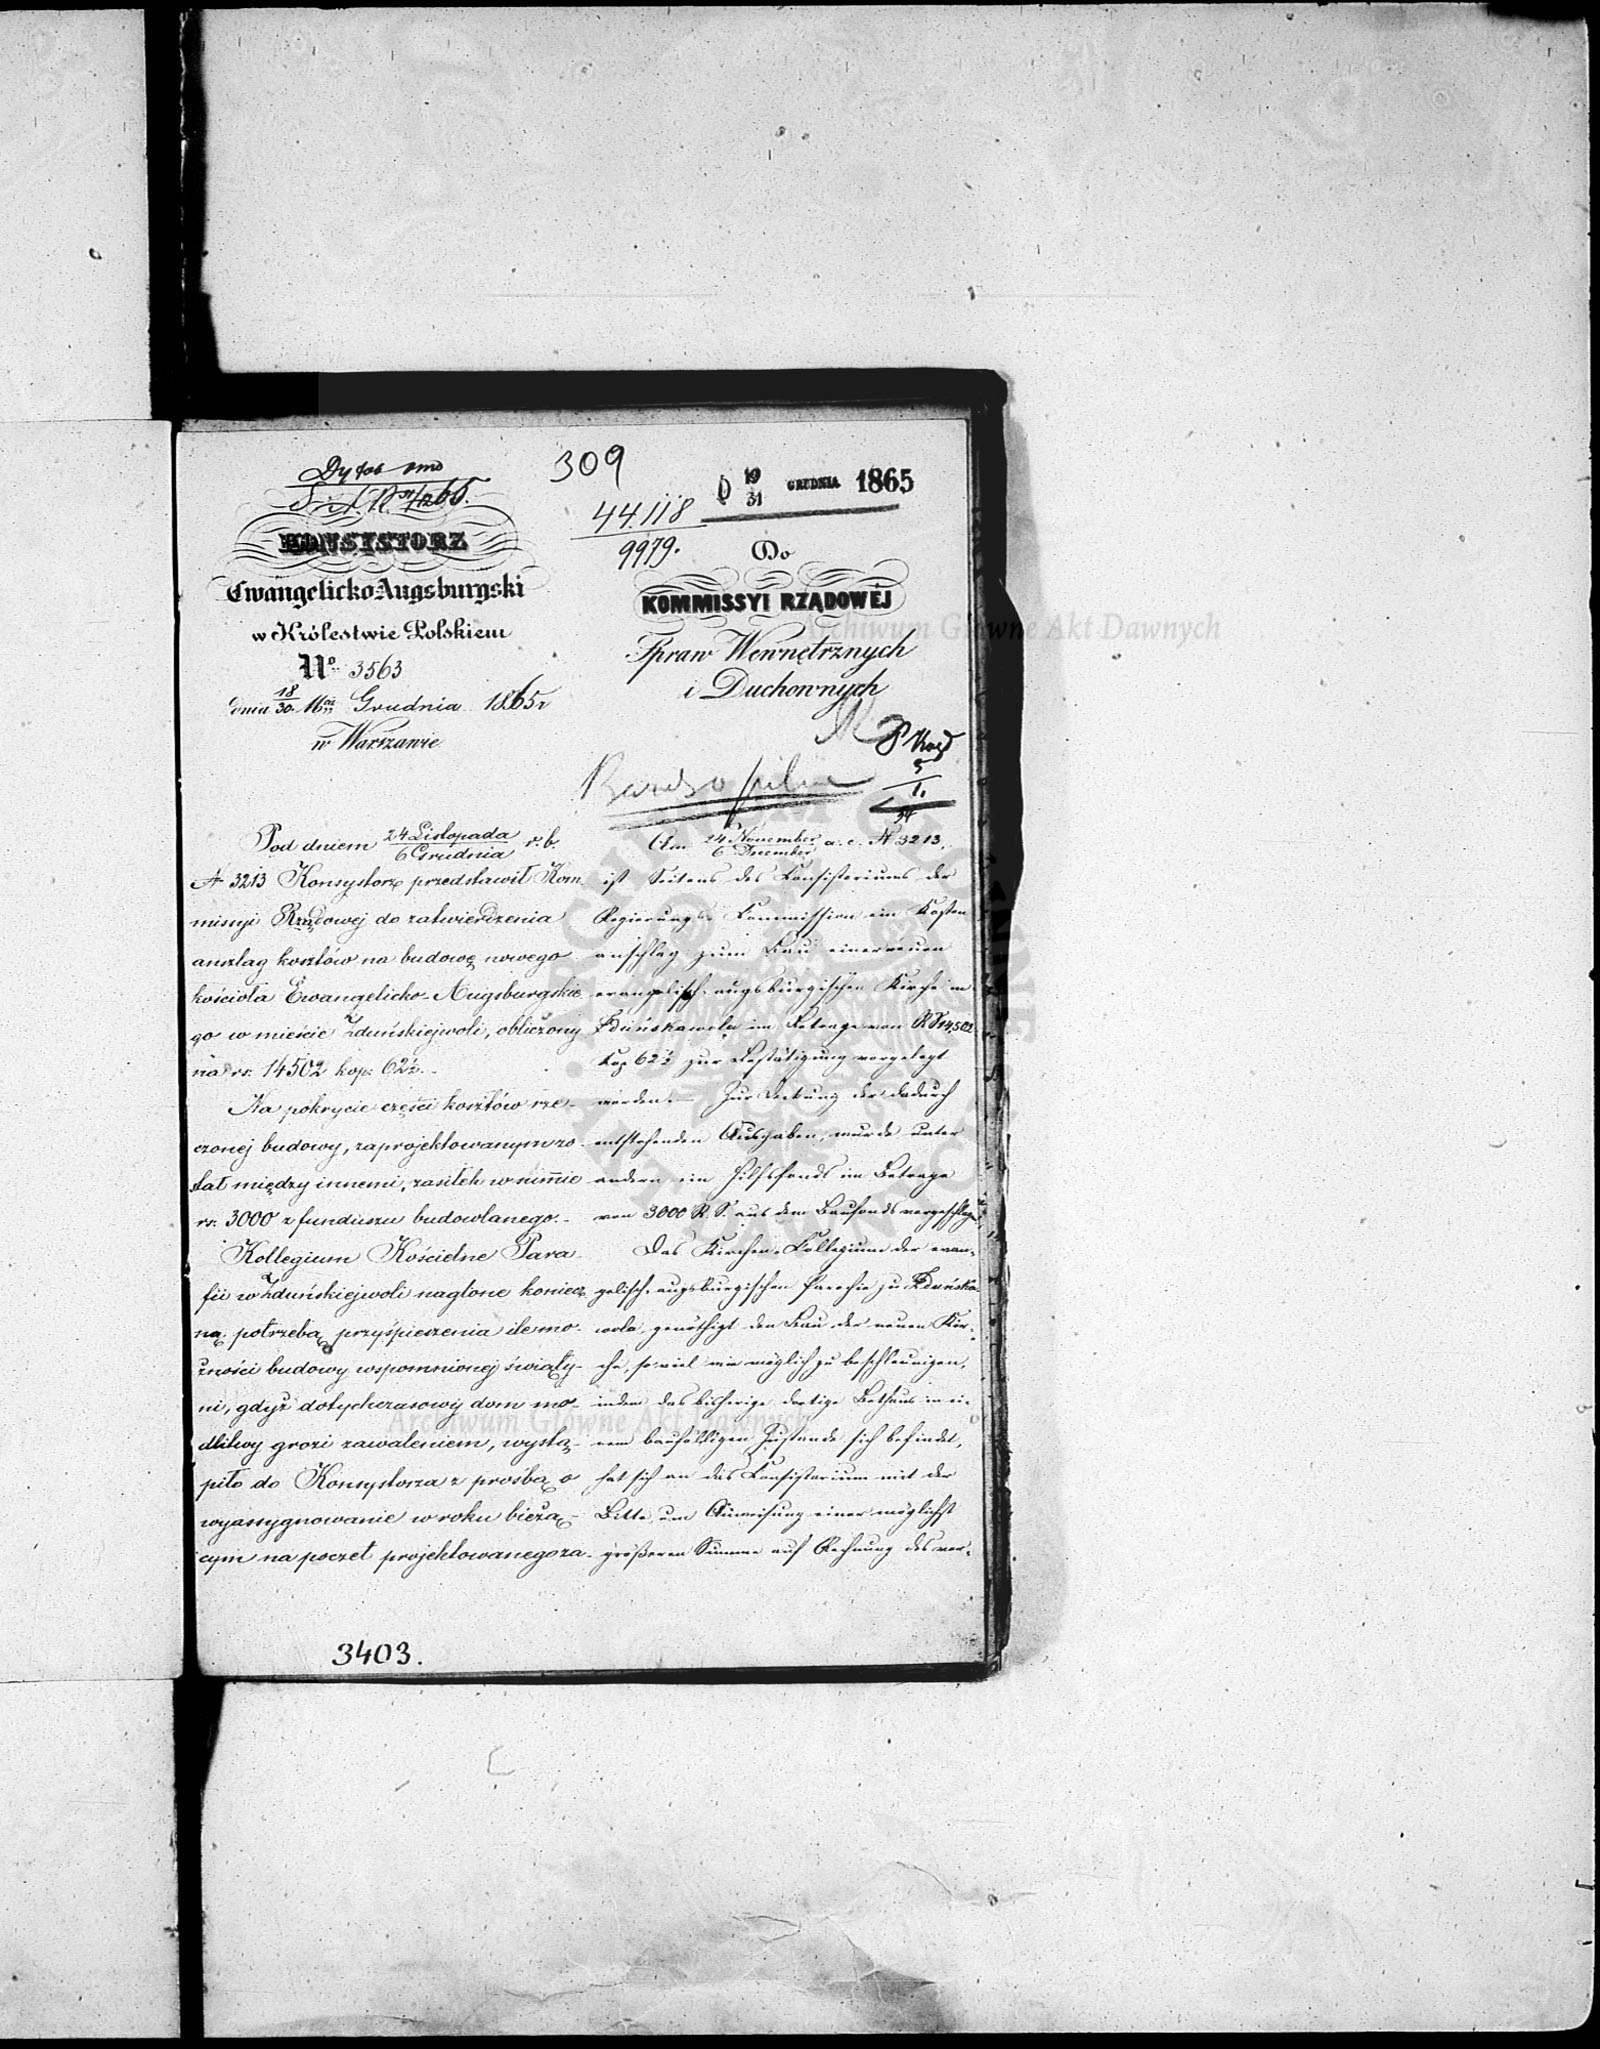 309
44.118
9979.
19
31 GRUDNIA 1865
KONSYSTORZ
Ewangelicko Augsburgski
w Królestwie Polskiem
No 3563
dnia 18/30 Grudnia 1865 r
w Warszawie
Do
KOMMISSYI RZĄDOWÉJ
Spraw Wewnętrznych
i Duchownych
Bardzo pilne
Pod dniem 24 Listopada / 6 Grudnia r. b.
N 3213 Konsystorz przedstawił Kom
missyi Rządowej do zatwierdzenia
anszlag kosztów na budowę nowego
kościoła Ewangelicko-Augsburgskie
go w mieście Zduńskiejwoli, obliczony
na rs. 14502 kop. 62½.
Na pokrycie części kosztów rze-
czonej budowy, zaprojektowanym zo
stał między innemi, zasiłek w summie
rs. 3000 z funduszu budowlanego.
Kollegium Kościelne Para
fii w Zduńskiejwoli naglone koniecz
ną potrzebą przyśpieszenia ile mo-
żności budowy wspomnionej świąty-
ni, gdyż dotychczasowy dom mo-
dlitwy grozi zawaleniem, wystą-
piło do Konsystorza z prośbą o
wyassygnowanie w roku bieżą-
cym na poczet projektowanego za-
Am 24 November / 6 December a. c. N 3213,
ist Seitens des Consistoriums der
Regierungs-Commission ein Kosten
anschlag zum Bau einer neuen
evangelisch-augsburgischen Kirche in
Zduńskawola im Betrage von RS 14,502
Kop 62½ zur Bestätigung vorgelegt
worden. — Zur Deckung der dadurch
entstehenden Ausgaben, wurde unter
andern ein Hilfsfonds im Betrage
von 3000 R. S. aus dem Baufonds
Das Kirchen-Collegium der evan-
gelisch-augsburgischen Parochie zu Zduńska-
wola, genöthigt den Bau der neuen Kir-
che, so viel wie möglich zu beschleunigen,
indem das bisherige dortige Bethaus in ei-
nem baufälligen Zustande sich befindet,
hat sich an das Consistorium mit der
Bitte, um Anweisung einer möglichst
größeren Summe auf Rechnung des vor-
3403.
Archiwum Główne Akt Dawnych
Archiwum Główne Akt Dawnych